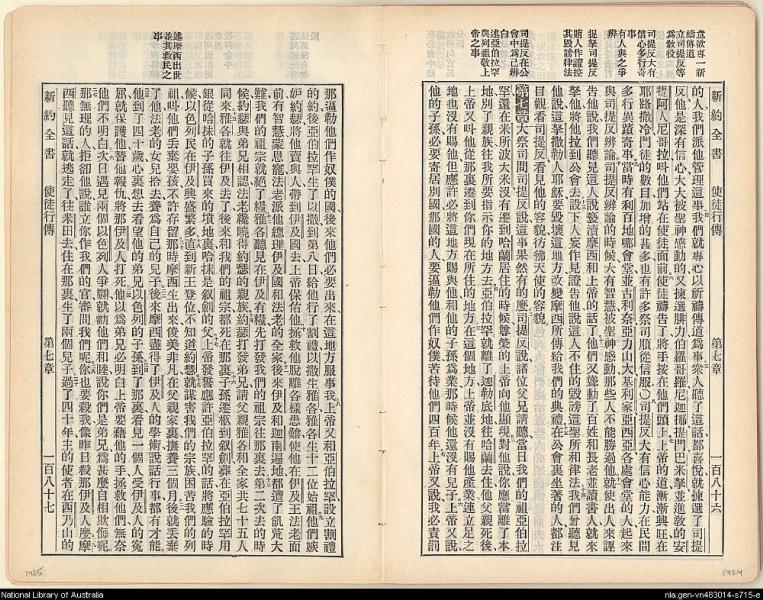 立司提反等
爲執役
司提反大有
信心多行奇
事
有人與之爭
辨
司提反在公
會中爲己辨
白
述亞伯拉罕
與列祖敬上
帝之事
新約全書 使徒行傳 第七章 一百八十六
的人我們派他管理這事我們就專心以祈禱傳道爲事衆人聽了這話都喜悅就揀選了司提
反他是深有信心大大被聖神感動的又揀選腓力伯羅哥羅尼迦挪提門巴米拏並進教的安
提阿人尼哥拉叫他們站在使徒面前使徒禱告了將手按在他們頭上上帝的道漸漸興旺在
耶路撒冷門徒的數目加增的甚多也有許多祭司順從信服○司提反大有信心能力在民間
多行異蹟奇事當時有利百地哪會堂並古利奈亞力山大基利家亞西亞各處會堂的人起來
與司提反辨論司提反辨論的時候大有智慧被聖神感動那些人不能勝過他就使出人來誣
告他說我們聽見這人說褻瀆摩西和上帝的話了他們又聳動了百姓和長老並讀書人就來
拏他將他拉到公會去設下人妄作見證告他說這人不住的毀謗這聖所和律法我們曾聽見
他說這拏撒勒人耶穌要毀壞這地方改變摩西所傳給我們的典禮在公會裏坐著的人都注
目觀看司提反看見他的容貌彷彿天使的容貌
第七章大祭司問司提反說這事果然有的麽司提反說諸位父兄請聽當日我們的祖亞伯拉
罕還在米所波大米沒有遷到哈蘭居住的時候尊榮的上帝向他顯現對他說你應當離了本
地別了親族往我所要指示你的地方去亞伯拉罕就離了迦勒底地往哈蘭去住他父親死後
上帝又叫他從那裏遷到你們現在所住的地方在這個地方上帝並沒有賜他產業連立足之
地也沒有賜他但應許必將這地方賜與他和他的子孫爲業那時候他還沒有兒子上帝又說
他的子孫必要寄居別國那國的人要逼勒他們作奴僕苦待他們四百年上帝又說我必責罰
述摩西出世
並其救民之
事
新約全書 使徒行傳 第七章 一百八十七
那逼勒他們作奴僕的國後來他們必要出來在這地方服事我上帝又和亞伯拉罕設立割禮
的約後亞伯拉罕生了以撒到第八日給他行了割禮以撒生雅各雅各生十二位始祖他們嫉
妒約瑟將他賣與人帶到伊及國去上帝保佑他拯救他脫離各樣患難使他在伊及王法老面
前有智慧蒙恩寵法老派他總理伊及國和法老的全家後來伊及和迦南遍地都遭了飢荒大
難我們的祖宗就絕了糧雅各聽見在伊及有糧先打發我們的祖宗往那裏去第二次去的時
候約瑟與弟兄相認法老纔曉得約瑟的親族約瑟打發弟兄請父親雅各和全家共七十五人
同來雅各就往伊及去了後來和我們的祖宗都死在那裏子孫遷柩到敘劍葬在亞伯拉罕用
銀從哈抹的子孫買來的墳地裏哈抹是敘劍的父上帝發誓應許亞伯拉罕的話將應驗的時
候以色列民在伊及興盛繁多直到新王登位不知道約瑟就謀害我們的宗族困苦我們的列
祖叫他們丟棄嬰孩不許存留那時摩西生出來俊美非凡在父親家裏撫養三個月後就丟棄
了他法老的女兒拾去養爲自己的兒子後來摩西盡得了伊及人的學術說話行事都有才能
他到了四十歲心裏想去看望他的弟兄以色列的子孫到了那裏看見一個人受伊及人的寃
屈就保護他替他報仇將那伊及人打死他以爲弟兄必明白上帝要藉他的手拯救他們無奈
他們不明白次日遇見兩個以色列人爭鬬就勸他們和睦說你們是弟兄爲甚麽自相欺侮呢
那無理的人拒卻他說誰立你作我們的官審問我們呢你也要殺我像昨日殺那伊及人麽摩
西聽見這話就逃走了往米田去住在那裏生了兩個兒子過了四十年主的使者在西乃山的
1425
1424
National Library of Australia
nla.gen-vn483014-s715-e